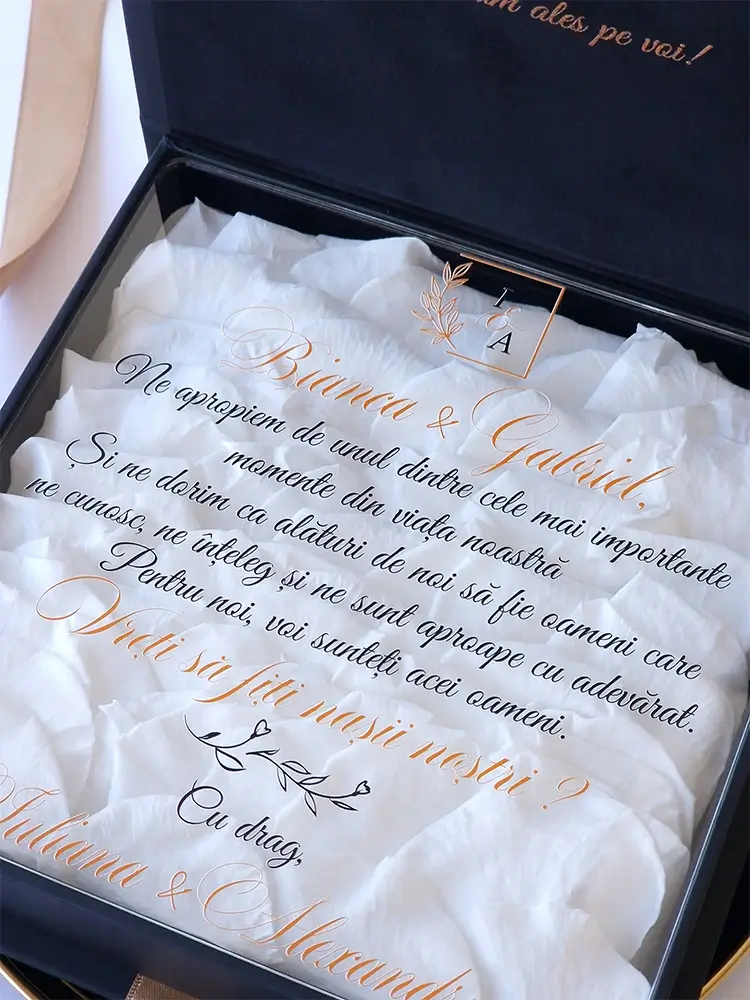 ales pe voi!
I
&
A
Bianca & Gabriel,
Ne apropiem de unul dintre cele mai importante
momente din viața noastră
Și ne dorim ca alături de noi să fie oameni care
ne cunosc, ne înțeleg și ne sunt aproape cu adevărat.
Pentru noi, voi sunteți acei oameni.
Vreți să fiți nașii noștri ?
Cu drag,
Iuliana & Alexand